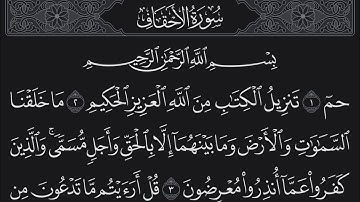 سُورَةُ الأَحْقَافِ
بِسْمِ اللَّهِ الرَّحْمَٰنِ الرَّحِيمِ
حمٓ ١ تَنزِيلُ الْكِتَابِ مِنَ اللَّهِ الْعَزِيزِ الْحَكِيمِ ٢ مَا خَلَقْنَا
السَّمَاوَاتِ وَالْأَرْضَ وَمَا بَيْنَهُمَا إِلَّا بِالْحَقِّ وَأَجَلٍ مُّسَمًّى ۚ وَالَّذِينَ
كَفَرُوا عَمَّا أُنذِرُوا مُعْرِضُونَ ٣ قُلْ أَرَءَيْتُم مَّا تَدْعُونَ مِن